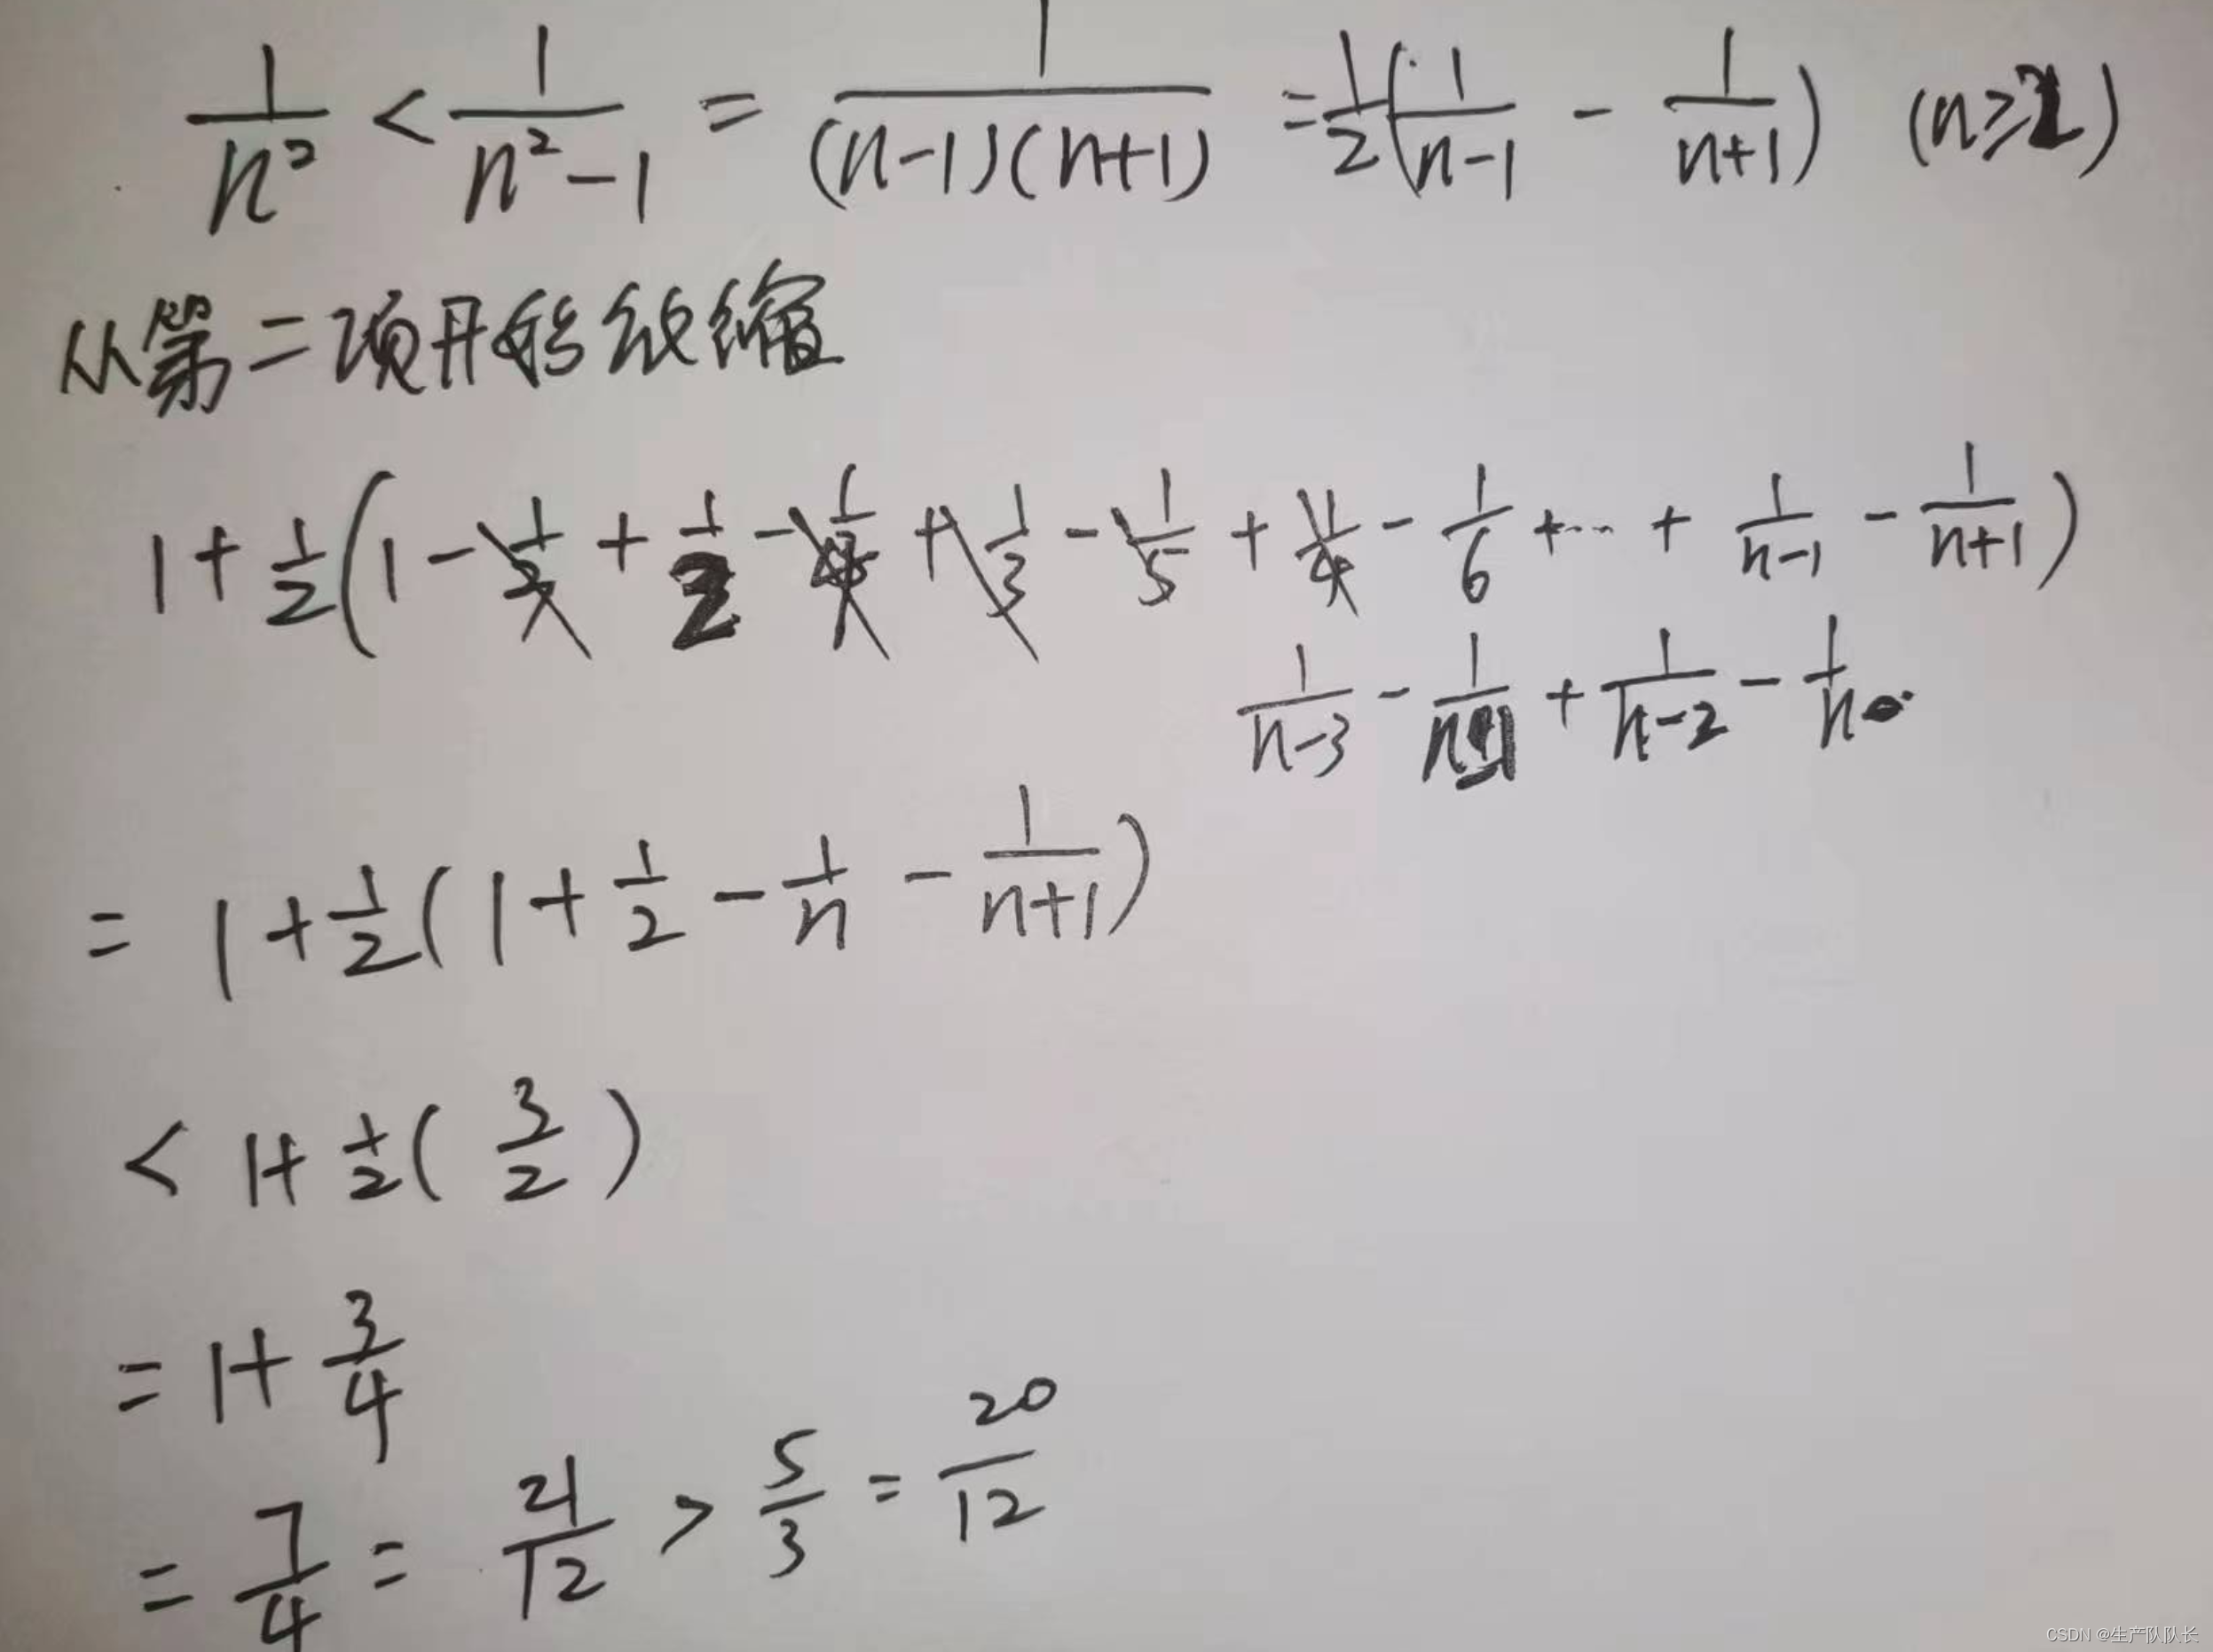 1/n² < 1/(n²-1) = 1/((n-1)(n+1)) = 1/2(1/(n-1) - 1/(n+1)) (n≥2)
从第二项开始放缩
1+1/2(1-1/3+1/2-1/4+1/3-1/5+1/4-1/6+…+1/(n-1)-1/(n+1))
1/(n-3) - 1/(n-1) + 1/(n-2) - 1/n
= 1+1/2(1+1/2-1/n-1/(n+1))
< 1+1/2(3/2)
= 1+3/4
= 7/4 = 21/12 > 5/3 = 20/12
CSDN @生产队队长